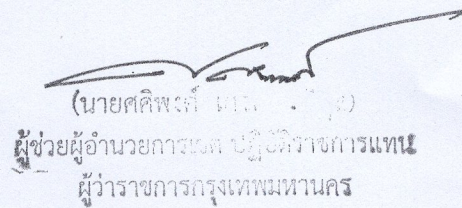 (นายศศิพงศ์
ผู้ช่วยผู้อำนวยการเขต ปฏิบัติราชการแทน
ผู้ว่าราชการกรุงเทพมหานคร